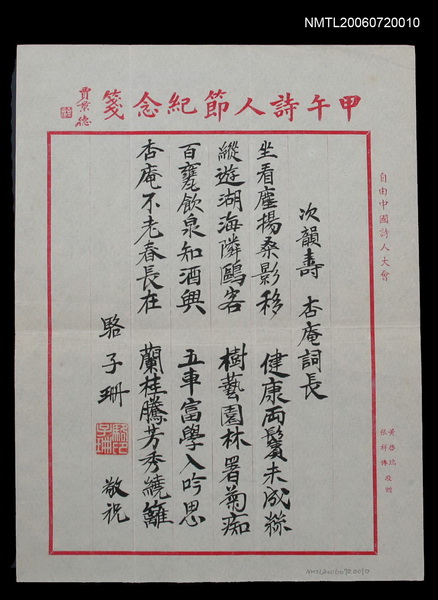 NMTL20060720010
甲午詩人節紀念箋
賈景德
自由中國詩人大會
次韻壽 杏庵詞長
坐看塵揚桑影移 健康兩鬢未成絲
縱遊湖海隣鷗客 樹藝園林署菊痴
百甕飲泉知酒興 五車富學入吟思
杏庵不老春長在 蘭桂騰芳秀繞籬
駱子珊 敬祝
駱子珊印
NMTL20060720010